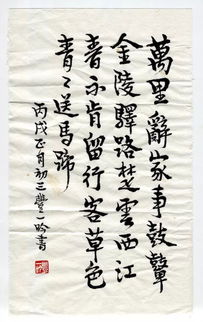 萬里辭家事鼓鼙
金陵驛路楚雲西江
春不肯留行客草色
青々送馬蹄
丙戌正月初三豐一吟書